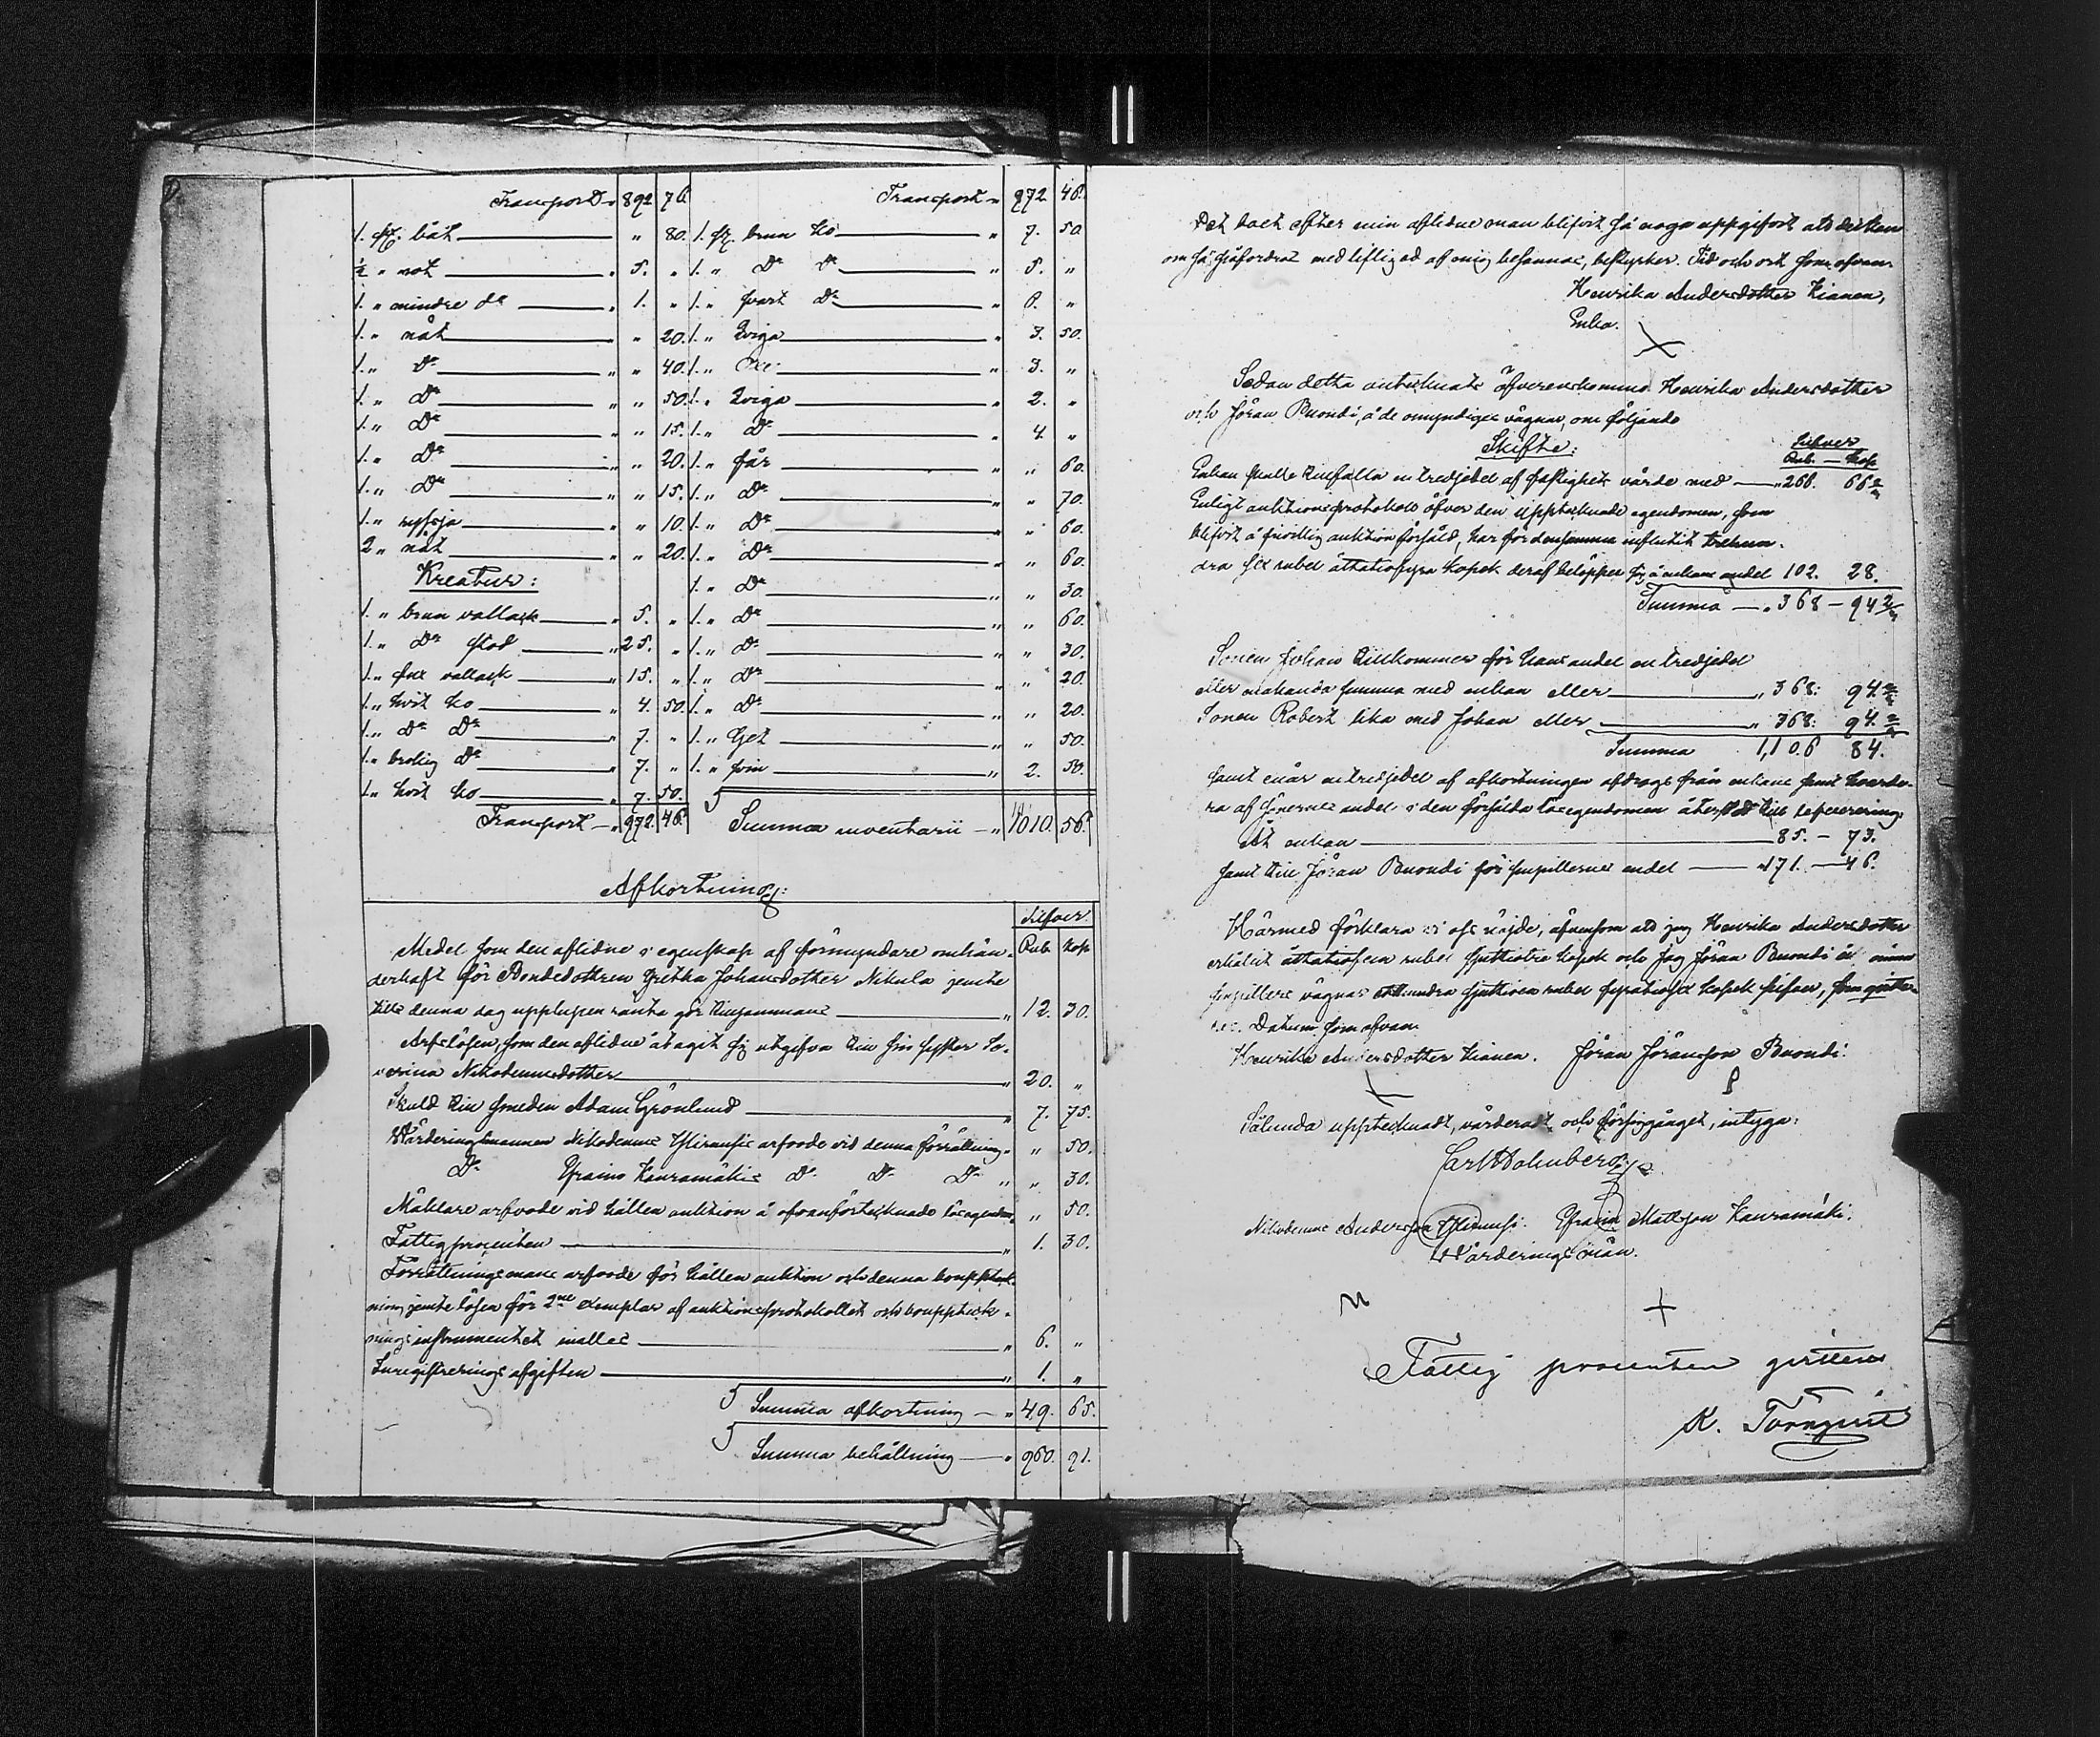 Transport „ 892 76.
1. st. båt „ 80.
½ „ not „ 5. „
1. „ mindre do „ 1. „
1. „ nät „ „ 20.
1. „ Do „ „ 40.
1. „ Do „ „ 50.
1. „ Do „ „ 15.
1. „ Do „ „ 20.
1. „ Do „ „ 15.
1. „ ryssja „ „ 10.
2 „ nät „ „ 20.
Kreatur:
1. „ brun vallack „ 5. „
1. „ Do stod „ 25. „
1. „ fux vallack „ 15. „
1. „ hvit ko „ 4. 50.
1. „ Do Do „ 7. „
1. „ brokig Do „ 7. „
1. „ hvit ko „ 7. 50.
Transport „ 972. 46.
Transport „ 972 46.
1. st. brun ko „ 7. 50
1. „ Do Do „ 5. „
1. „ svart Do „ 6. „
1. „ Qviga „ 3. 50.
1. „ Oxe „ 3. „
1. „ Qviga „ 2. „
1. „ Do „ 4. „
1. „ får „ „ 60.
1. „ Do „ „ 70.
1. „ Do „ „ 60.
1. „ Do „ „ 60.
1. „ Do „ „ 30.
1. „ Do „ „ 60.
1. „ Do „ „ 30.
1. „ Do „ „ 20.
1. „ Do „ „ 20.
1. „ Get „ „ 50.
1. „ svin „ 2. 50.
Summa inventarii „ 1010. 56.
Afkortning:
Silfver
Rub. Kop
Medel som den aflidne i egenskap af förmyndare omhän-
derhaft för Bondedottren Gretha Johansdotter Nikula jemte
till denna dag upplupen ränta gör tillsammans „ 12. 30.
Arfslösen, som den aflidne åtagit sig utgifva till sin syster
Nikodemusdotter „ 20. „
Skuld till smeden Adam Grönlund „ 7. 75.
Värderingsmannen Nikodemus arfvode vid denna förrättning „ „ 50.
Do Efraim Kauramäkis Do Do Do „ „ 30.
Mäklare arfvode vid hållen auktion å ofvanförtecknade lösegendom „ 50.
Fattigprocenten „ 1. 30.
Förrättningsmans arfvode för hållen auktion och denna bouppteck-
ning jemte lösen för 2ne exemplar af auktionsprotokollet och bouppteck-
ningsinstrumentet inalles „ 6. „
Inregistreringsafgiften „ 1. „
Summa afkortning „ 49. 65.
Summa behållning „ 960. 91.
Det boet efter min aflidne man blifvit så noga uppgifvet att det kan
om så påfordras med liflig ed af mig besannas, bestyrker. Tid och ort som ofvan.
Henrika Andersdotter Kianen,
Enka.
Sedan detta antecknats öfverenskommo Henrika Andersdotter
och Jöran Buondi, å de omyndiges vägnar, om följande
Skifte:
Silfver
Rub. — Kop
Enkan skulle tillfalla en tredjedel af fastighets värde med „ 266. 66 ⅔
Enligt auktionsprotokoll öfver den upptecknade egendomen, som
blifvit å frivillig auktion försåld, har för densamma influtit trehun-
dra sex rubel åttatiofyra kopek deraf belöpper sig å enkans andel 102. 28.
Summa „ 368 – 94 ⅔
Sonen Johan tillkommer för hans andel en tredjedel
eller enahanda summa med enkan eller „ 368: 94. ⅔
Sonen Robert lika med Johan eller „ 368: 94. ⅔
Summa 1,106 84.
samt när en tredjedel af afkortningen afdrags från enkans samt hvarde-
ra af sönernes andel i den försålda lösegendomen återstår till leverering:
åt enkan 85. – 73.
samt till Jöran Buondi för pupillernes andel „ 171. – 46.
Härmed förklara vi oss nöjde, äfvensom att jag Henrika Andersdotter
erhållit åttatiofem rubel sjuttiotre kopek och jag Jöran Buondi å mina
pupillers vägnar etthundra sjuttioen rubel fyratiosex kopek silfver, som qvitte-
ras. Datum som ofvan.
Henrika Andersdotter Kianen. Jöran Jöransson Buondi.
Sålunda upptecknadt, värderadt och försiggånget, intyga:
Carl Holmberg
Nikodemus Andersson Efraim Mattsson Kauramäki.
Värderingsmän.
Fattig procenten qvitteras
K. Törnqvist